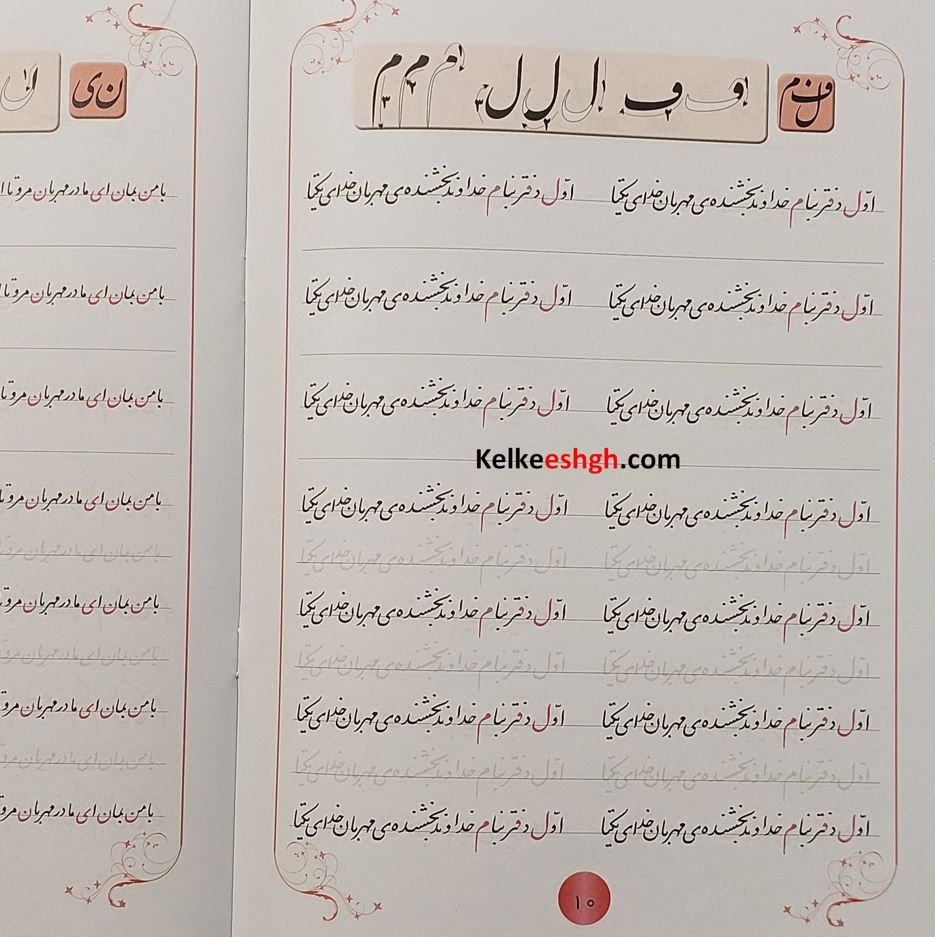 ف ل م
ف ف ل ل ل م م م
اوّل دفتر بنام خداوند بخشنده‌ی مهربان خدای یکتا اوّل دفتر بنام خداوند بخشنده‌ی مهربان خدای یکتا
اوّل دفتر بنام خداوند بخشنده‌ی مهربان خدای یکتا اوّل دفتر بنام خداوند بخشنده‌ی مهربان خدای یکتا
اوّل دفتر بنام خداوند بخشنده‌ی مهربان خدای یکتا اوّل دفتر بنام خداوند بخشنده‌ی مهربان خدای یکتا
Kelkeeshgh.com
اوّل دفتر بنام خداوند بخشنده‌ی مهربان خدای یکتا اوّل دفتر بنام خداوند بخشنده‌ی مهربان خدای یکتا
اوّل دفتر بنام خداوند بخشنده‌ی مهربان خدای یکتا اوّل دفتر بنام خداوند بخشنده‌ی مهربان خدای یکتا
اوّل دفتر بنام خداوند بخشنده‌ی مهربان خدای یکتا اوّل دفتر بنام خداوند بخشنده‌ی مهربان خدای یکتا
اوّل دفتر بنام خداوند بخشنده‌ی مهربان خدای یکتا اوّل دفتر بنام خداوند بخشنده‌ی مهربان خدای یکتا
اوّل دفتر بنام خداوند بخشنده‌ی مهربان خدای یکتا اوّل دفتر بنام خداوند بخشنده‌ی مهربان خدای یکتا
اوّل دفتر بنام خداوند بخشنده‌ی مهربان خدای یکتا اوّل دفتر بنام خداوند بخشنده‌ی مهربان خدای یکتا
اوّل دفتر بنام خداوند بخشنده‌ی مهربان خدای یکتا اوّل دفتر بنام خداوند بخشنده‌ی مهربان خدای یکتا
اوّل دفتر بنام خداوند بخشنده‌ی مهربان خدای یکتا اوّل دفتر بنام خداوند بخشنده‌ی مهربان خدای یکتا
۱۰
ن ی
با من بمان ای مادر مهربان مرو تا
با من بمان ای مادر مهربان مرو تا
با من بمان ای مادر مهربان مرو تا
با من بمان ای مادر مهربان مرو تا
با من بمان ای مادر مهربان مرو
با من بمان ای مادر مهربان مرو
با من بمان ای مادر مهربان مرو
با من بمان ای مادر مهربان مرو
با من بمان ای مادر مهربان مرو
با من بمان ای مادر مهربان مرو